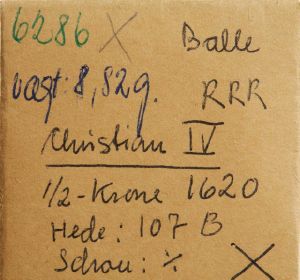 6286 X Balle
vægt: 8,82g. RRR
Christian IV
1/2-Krone 1620
Hede: 107 B
Schou: ٪ X